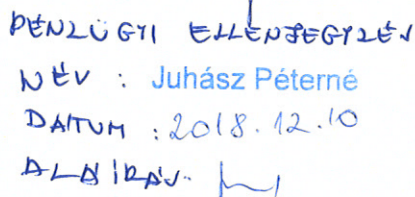 PÉNZÜGYI ELLENJEGYZÉS
NÉV : Juhász Péterné
DÁTUM : 2018.12.10
ALÁÍRÁS: